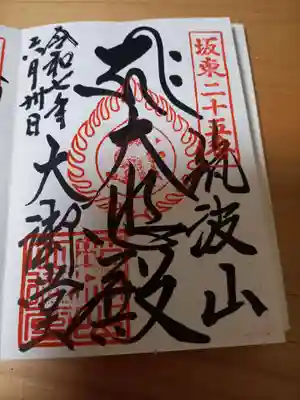 坂東二十五
筑波山
大悲殿
大御堂
令和七年
六月卅日